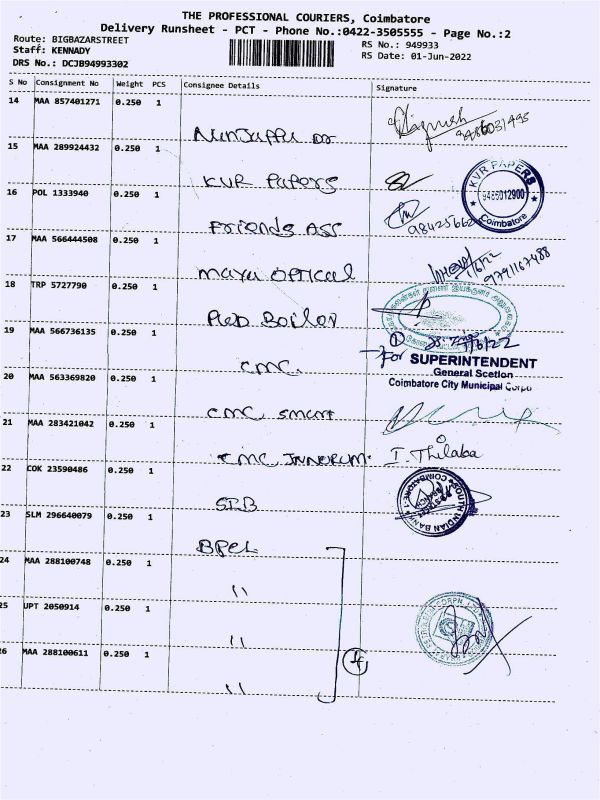 THE PROFESSIONAL COURIERS, Coimbatore
Delivery Runsheet - PCT - Phone No.:0422-3505555 - Page No.:2
Route: BIGBAZARSTREET
RS No.: 949933
Staff: KENNADY
RS Date: 01-Jun-2022
DRS No.: DCJB94993302
S No Consignment No Weight PCS Consignee Details Signature
14 MAA 857401271 0.250 1
9486031495
15 MAA 289924432 0.250 1
KVR Papers
KVR PAPERS
9485012900
Coimbatore
16 POL 1333940 0.250 1
Friends Ass
17 MAA 566444508 0.250 1
Maya optical
9791167488
18 TRP 5727790 0.250 1
Boiler
1/6/22
for SUPERINTENDENT
19 MAA 566736135 0.250 1
General Scetion
CMC.
Coimbatore City Municipal Corpo
20 MAA 563369820 0.250 1
CMC smart
21 MAA 283421042 0.250 1
CMC
T. Thilaba
22 COK 23590486 0.250 1
SIB
SOUTH INDIAN BANK
COIMBATORE
23 SLM 296640079 0.250 1
BPCL
24 MAA 288100748 0.250 1
"
25 UPT 2050914 0.250 1
"
26 MAA 288100611 0.250 1
"